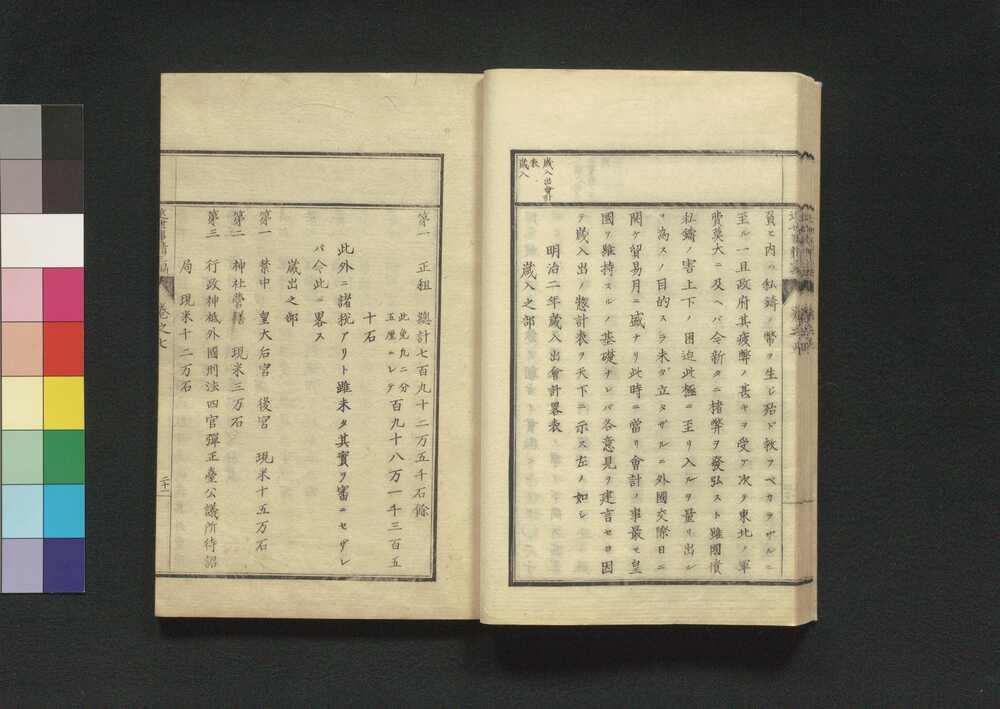 歳入出會計
表
歳入
員ヒ内ハ私鑄ノ幣ヲ生シ殆ド救フベカラサルニ
至ル一旦政府其疲弊ノ甚キヲ受ケ次テ東北ノ軍
費莫大ニ及ヘバ今新タニ楮幣ヲ發弘スト雖國債
私鑄ノ害上下ノ困迫此極ニ至リ入ルヲ量リ出シ
ヲ為スノ目的スラ未ダ立タザルニ外國交際日ニ
開ケ貿易月ニ盛ナリ此時ニ當リ會計ノ事最モ皇
國ヲ維持スルノ基礎ナレバ各意見ヲ建言セヨ因
テ歳入出ノ惣計表ヲ天下ニ示ス左ノ如シ
明治二年歳入出會計畧表
歳入之部
第一　正租　總計七百九十二万五千石餘
此免九二分
五厘ニシテ
百九十八万一千三百五
十石
此外ニ諸税アリト雖未タ其實ヲ審ニセザレ
バ今此ニ畧ス
歳出之部
第一　禁中　皇大后宮　後宮　現米十五万石
第二　神社營繕　現米三万石
第三　行政神祗外國刑法四官彈正臺公議所待詔
局　現米十二万石
卷之七
二十一